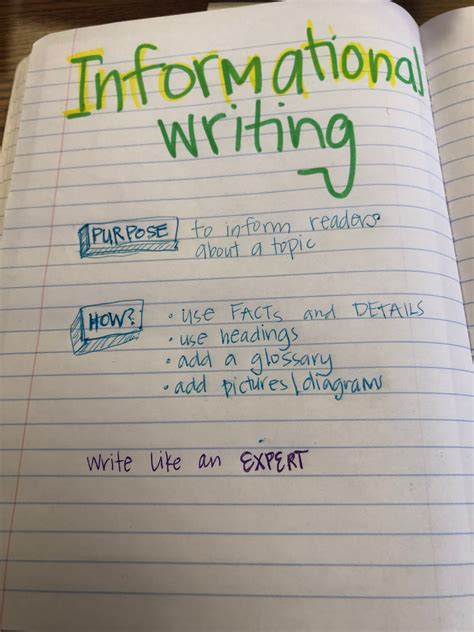 Informational
writing
PURPOSE to inform readers
about a topic
HOW? • use FACTS and DETAILS
• use headings
• add a glossary
• add pictures/diagrams
Write like an EXPERT